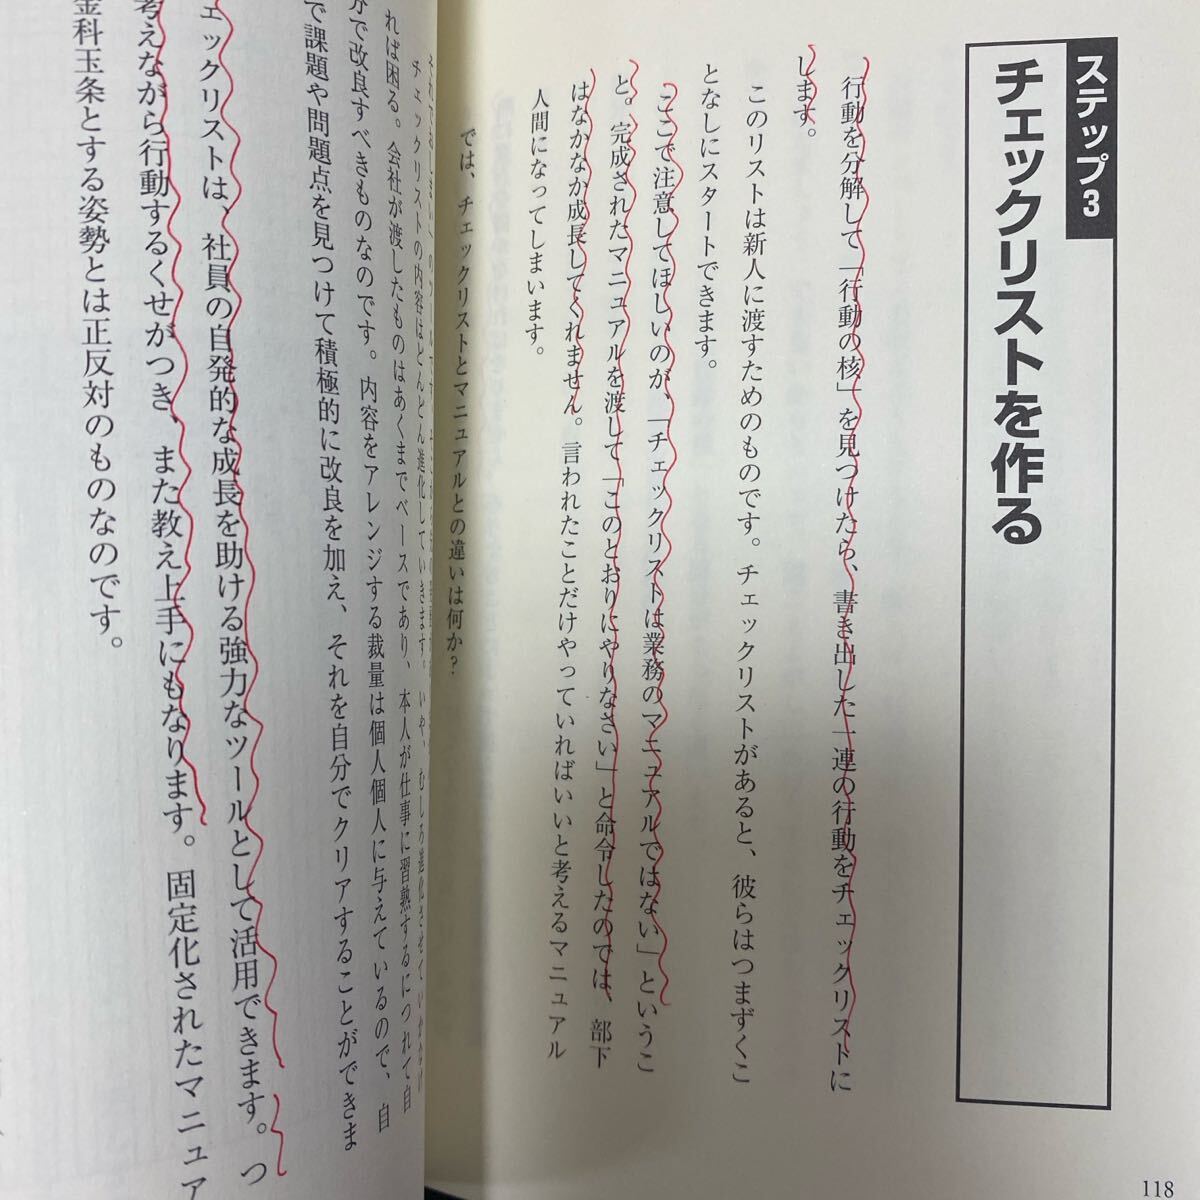 ステップ3
チェックリストを作る
行動を分解して「行動の核」を見つけたら、書き出した一連の行動をチェックリストに
します。
このリストは新人に渡すためのものです。チェックリストがあると、彼らはつまずくこ
となしにスタートできます。
ここで注意してほしいのが、「チェックリストは業務のマニュアルではない」というこ
と。完成されたマニュアルを渡して「このとおりにやりなさい」と命令したのでは、部下
はなかなか成長してくれません。言われたことだけやっていればいいと考えるマニュアル
人間になってしまいます。
では、チェックリストとマニュアルとの違いは何か?
118
チェックリストの内容はどんどん進化していきます。いや、むしろ進化させていかなけ
れば困る。会社が渡したものはあくまでベースであり、本人が仕事に習熟するにつれて自
分で改良すべきものなのです。内容をアレンジする裁量は個人個人に与えているので、自
で課題や問題点を見つけて積極的に改良を加え、それを自分でクリアすることができま
ェックリストは、社員の自発的な成長を助ける強力なツールとして活用できます。つ
考えながら行動するくせがつき、また教え上手にもなります。固定化されたマニュア
金科玉条とする姿勢とは正反対のものなのです。